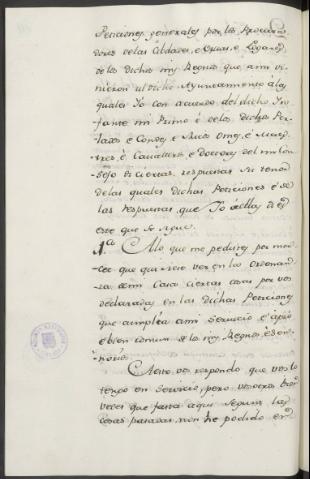 Peticiones generales por los Procura-
dores de las Cibdades, è Villas, è Lugares
de los dichos mis Regnos que aqui vi-
nieron al dicho Ayuntamiento à las
quales Yo con acuerdo del dicho In-
fante mi Primo è de los dichos Per-
lados è Condes è Ricos Omes, è Maes-
tres, è Cavalleros è Doctores del mi Con-
sejo di ciertas respuestas su tenor
de las quales dichas Peticiones è de
las respuestas que Yo à ellas di es
este que se sigue.
1.ª A lo que me pedistes por mer-
ced que quisiese ver en la Ordenan-
za de mi Casa ciertas cosas por vos
declaradas en las dichas Peticiones
que cumplen à mi servicio è à pro
è bien comun de los mis Regnos è Se-
ñorios.
A esto vos respondo que vos lo
tengo en servicio, pero vosotros bien
vedes que fasta aqui segunt las
cosas pasadas non he podido en